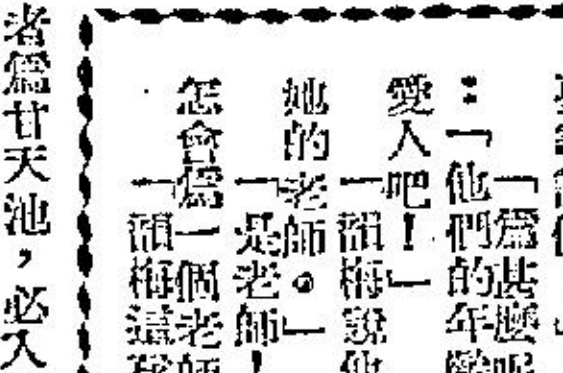 「爲甚麼呢
：「他們的年齡
愛人吧！」
「韻梅說他
她的老師。」
「是老師！
怎會爲一個老師
「韻梅這
者爲甘天池，必入